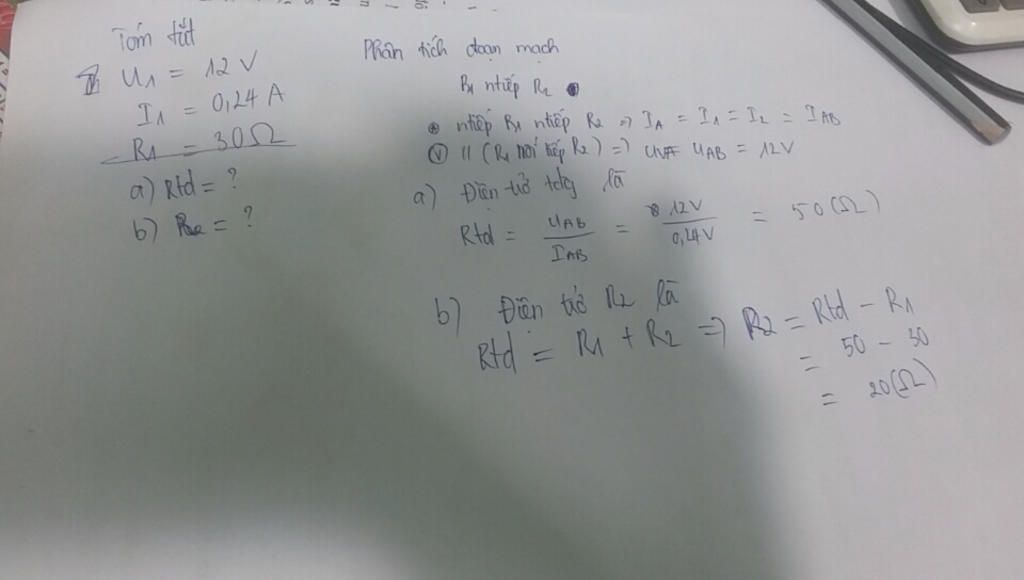 Tóm tắt
U1 = 12 V
I1 = 0,24 A
R1 = 30Ω
a) Rtd = ?
b) R2 = ?
Phân tích đoạn mạch
R1 ntiếp R2
ntiếp R1 ntiếp R2 => IA = I1 = I2 = IAB
(V) // (R1 nối tiếp R2) => UV = UAB = 12V
a) Điện trở tđg là
Rtd = UAB / IAB = 12V / 0,24V = 50(Ω)
b) Điện trở R2 là
Rtd = R1 + R2 => R2 = Rtd - R1
= 50 - 30
= 20(Ω)